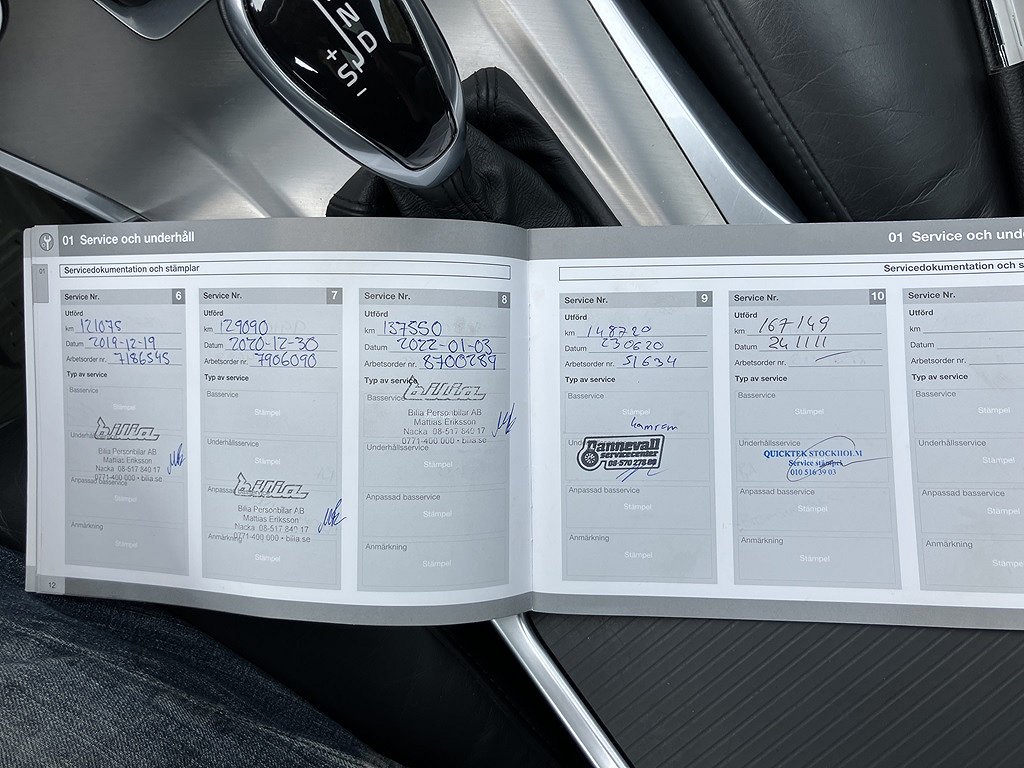 N
D
+
S
-
01 Service och underhåll
01
Servicedokumentation och stämplar
Service Nr. 6
Utförd
km 121075
Datum 2019-12-19
Arbetsorder nr. 7186545
Typ av service
Basservice
Stämpel
bilia
Bilia Personbilar AB
Mattias Eriksson
Nacka 08-517 840 17
0771-400 000 • bilia.se
Anpassad basservice
Stämpel
Anmärkning
Stämpel
12
Service Nr. 7
Utförd
km 129090
Datum 2020-12-30
Arbetsorder nr. 7906090
Typ av service
Basservice
Stämpel
Underhållsservice
Stämpel
bilia
Bilia Personbilar AB
Mattias Eriksson
Nacka 08-517 840 17
0771-400 000 • bilia.se
Anmärkning
Stämpel
Service Nr. 8
Utförd
km 137550
Datum 2022-01-03
Arbetsorder nr. 8700289
Typ av service
Basservice
bilia
Bilia Personbilar AB
Mattias Eriksson
Nacka 08-517 840 17
0771-400 000 • bilia.se
Underhållsservice
Stämpel
Anpassad basservice
Stämpel
Anmärkning
Stämpel
01 Service och unde
Servicedokumentation och s
Service Nr. 9
Utförd
km 148720
Datum 230620
Arbetsorder nr. 51634
Typ av service
Basservice
Stämpel
Dannevall
servicecenter
08-570 278 00
Anpassad basservice
Stämpel
Anmärkning
Stämpel
Service Nr. 10
Utförd
km 167149
Datum 241111
Arbetsorder nr.
Typ av service
Basservice
Stämpel
Underhållsservice
QUICKTEK STOCKHOLM
Service stämpel
010 516 39 03
Anpassad basservice
Stämpel
Anmärkning
Stämpel
Service Nr.
Utförd
km
Datum
Arbetsorder nr.
Typ av service
Basservice
Stämpel
Underhållsservice
Stämpel
Anpassad basservice
Stämpel
Anmärkning
Stämpel